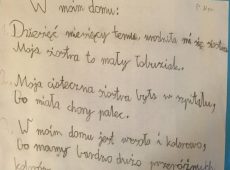 W moim domu:
Dziesięć miesięcy temu urodziła mi się siostra
Moja siostra to mały łobuziak.
Moja cioteczna siostra była w szpitalu,
Bo miała chory palec.
W moim domu jest wesoło i kolorowo,
Bo mamy bardzo dużo